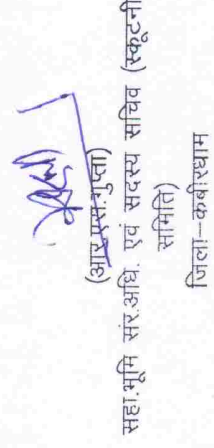 (आर.एस.गुप्ता)
सहा.भूमि संर.अधि. एवं सदस्य सचिव (स्कूटनी
समिति)
जिला–कबीरधाम